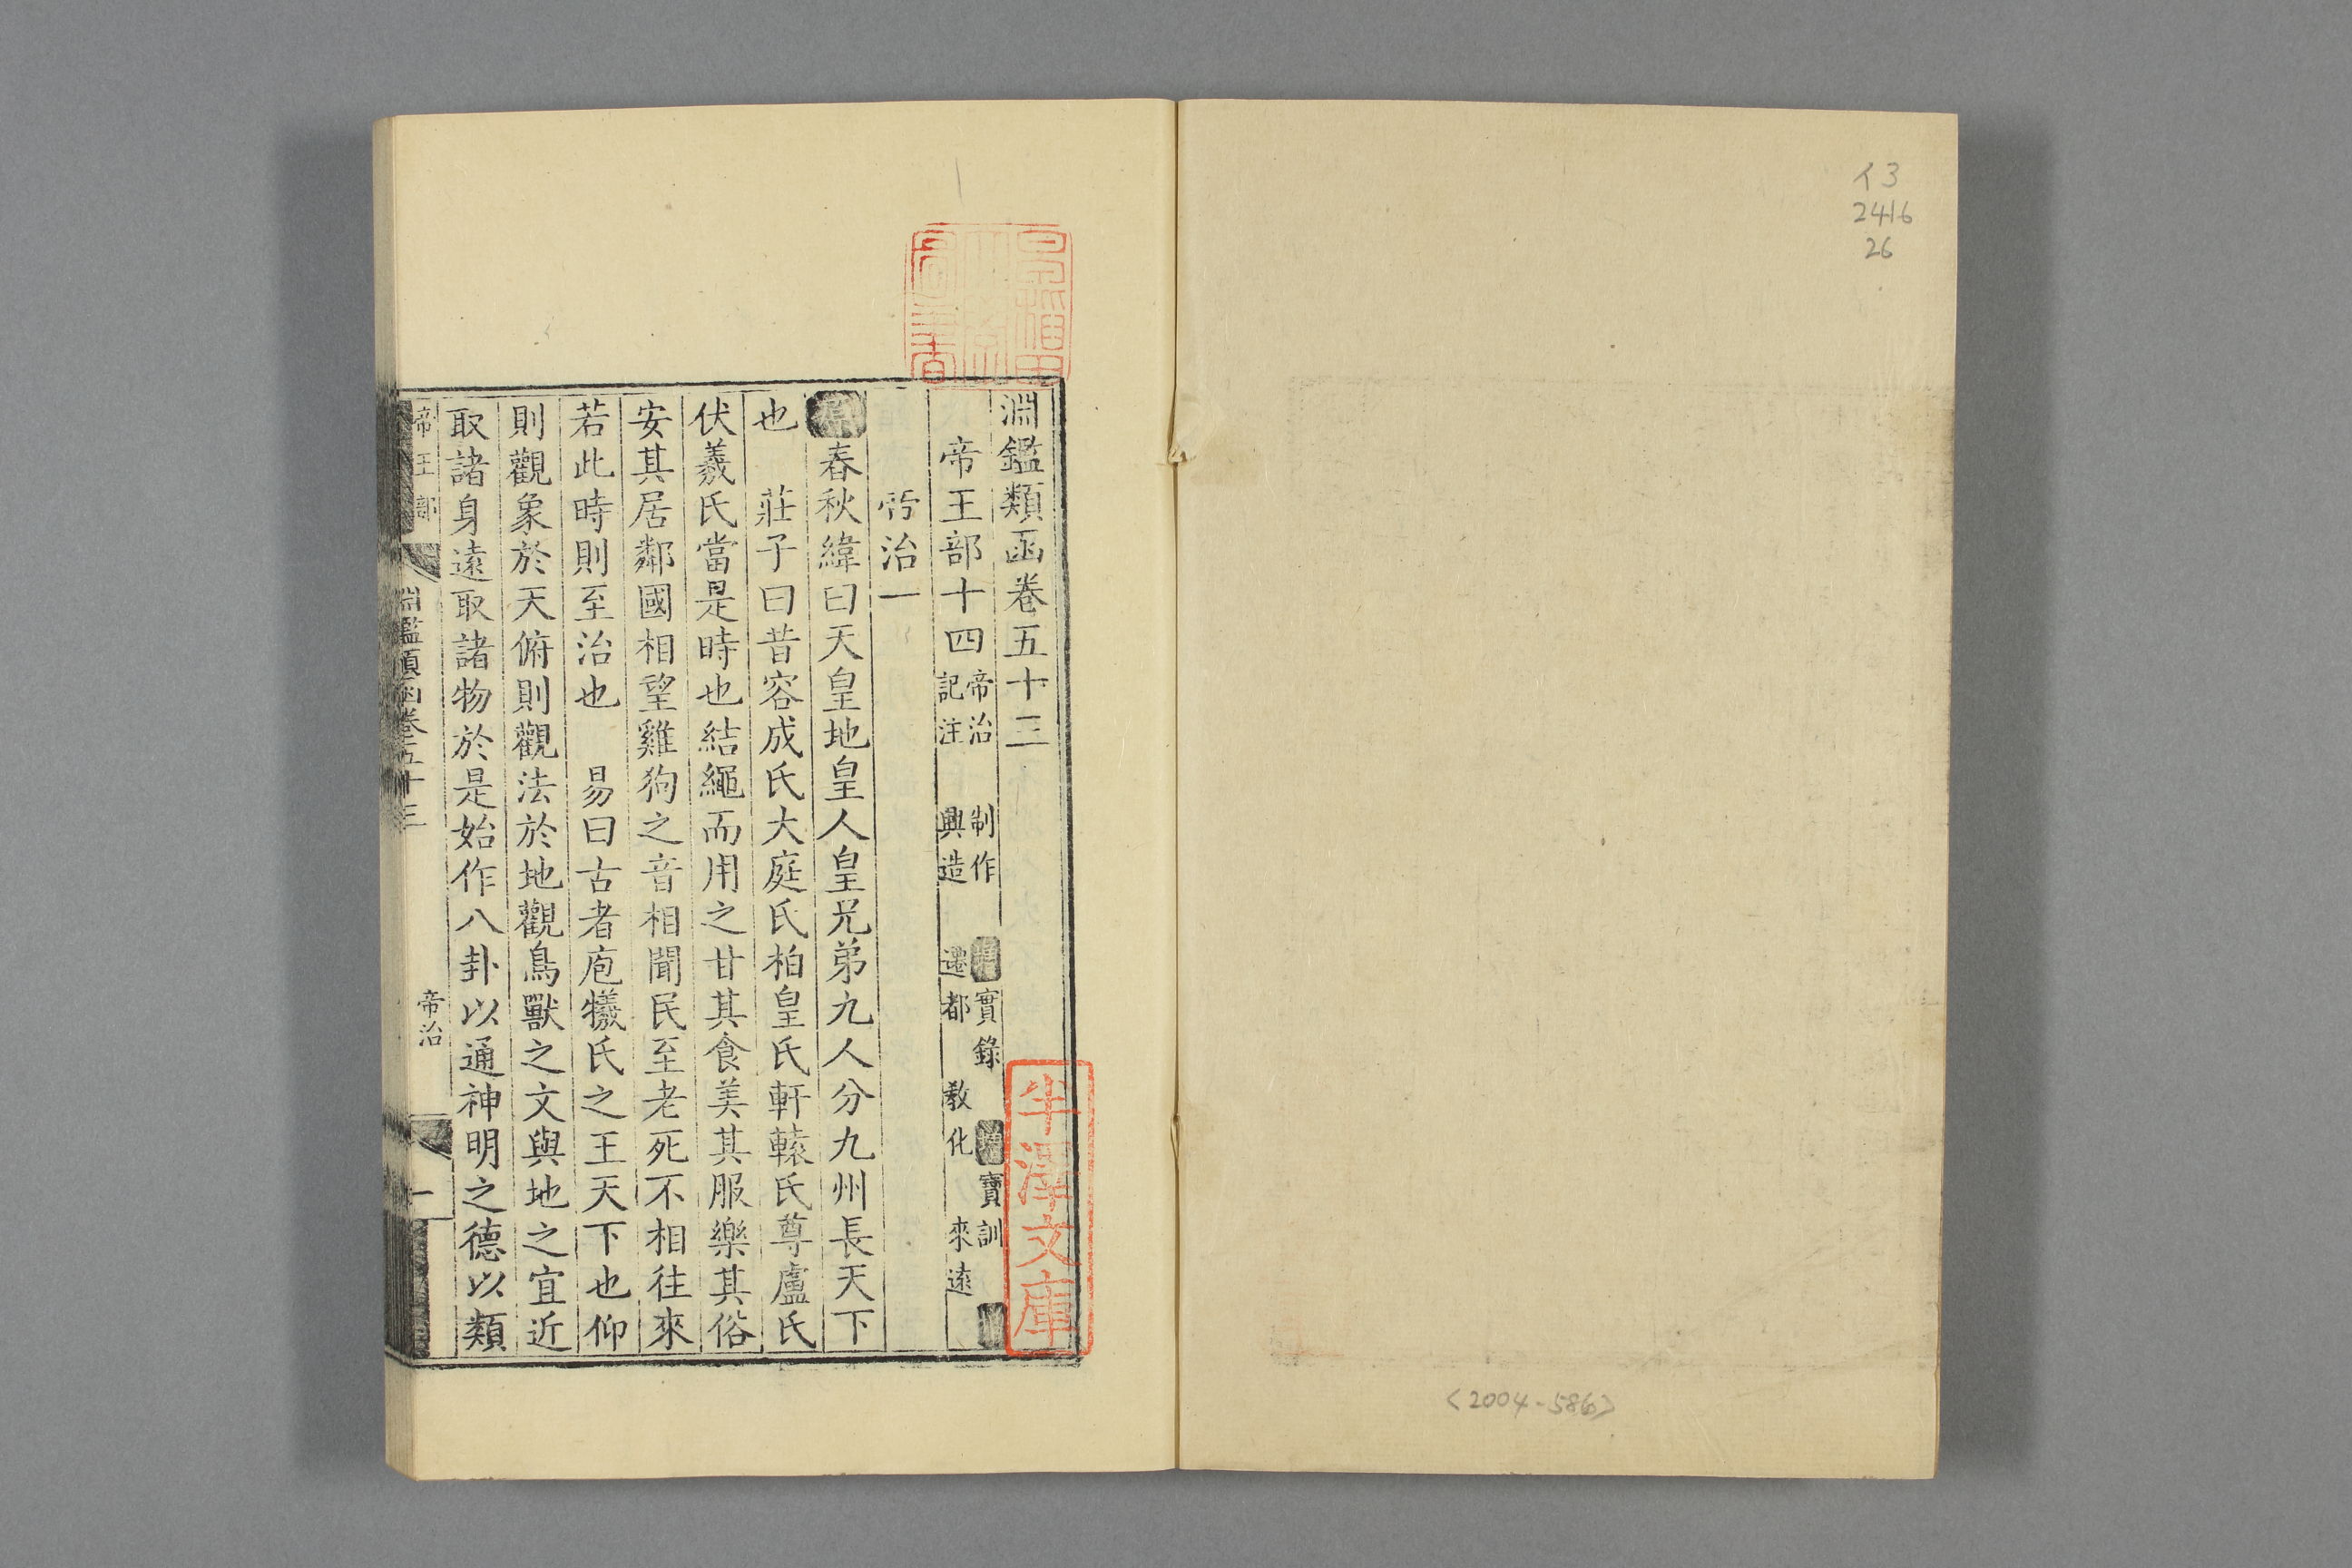 イ3
2416
26
<2004-586>
淵鑑類函卷五十三
帝王部十四 帝治 制作 實錄 寶訓
記注 興造 遷都 教化 來遠
帝治一
原 春秋緯曰天皇地皇人皇兄弟九人分九州長天下
也 莊子曰昔容成氏大庭氏柏皇氏軒轅氏尊盧氏
伏羲氏當是時也結繩而用之甘其食美其服樂其俗
安其居鄰國相望雞狗之音相聞民至老死不相往來
若此時則至治也 易曰古者庖犧氏之王天下也仰
則觀象於天俯則觀法於地觀鳥獸之文與地之宜近
取諸身遠取諸物於是始作八卦以通神明之德以類
帝王部 淵鑑類函卷五十三 帝治 一
半澤文庫